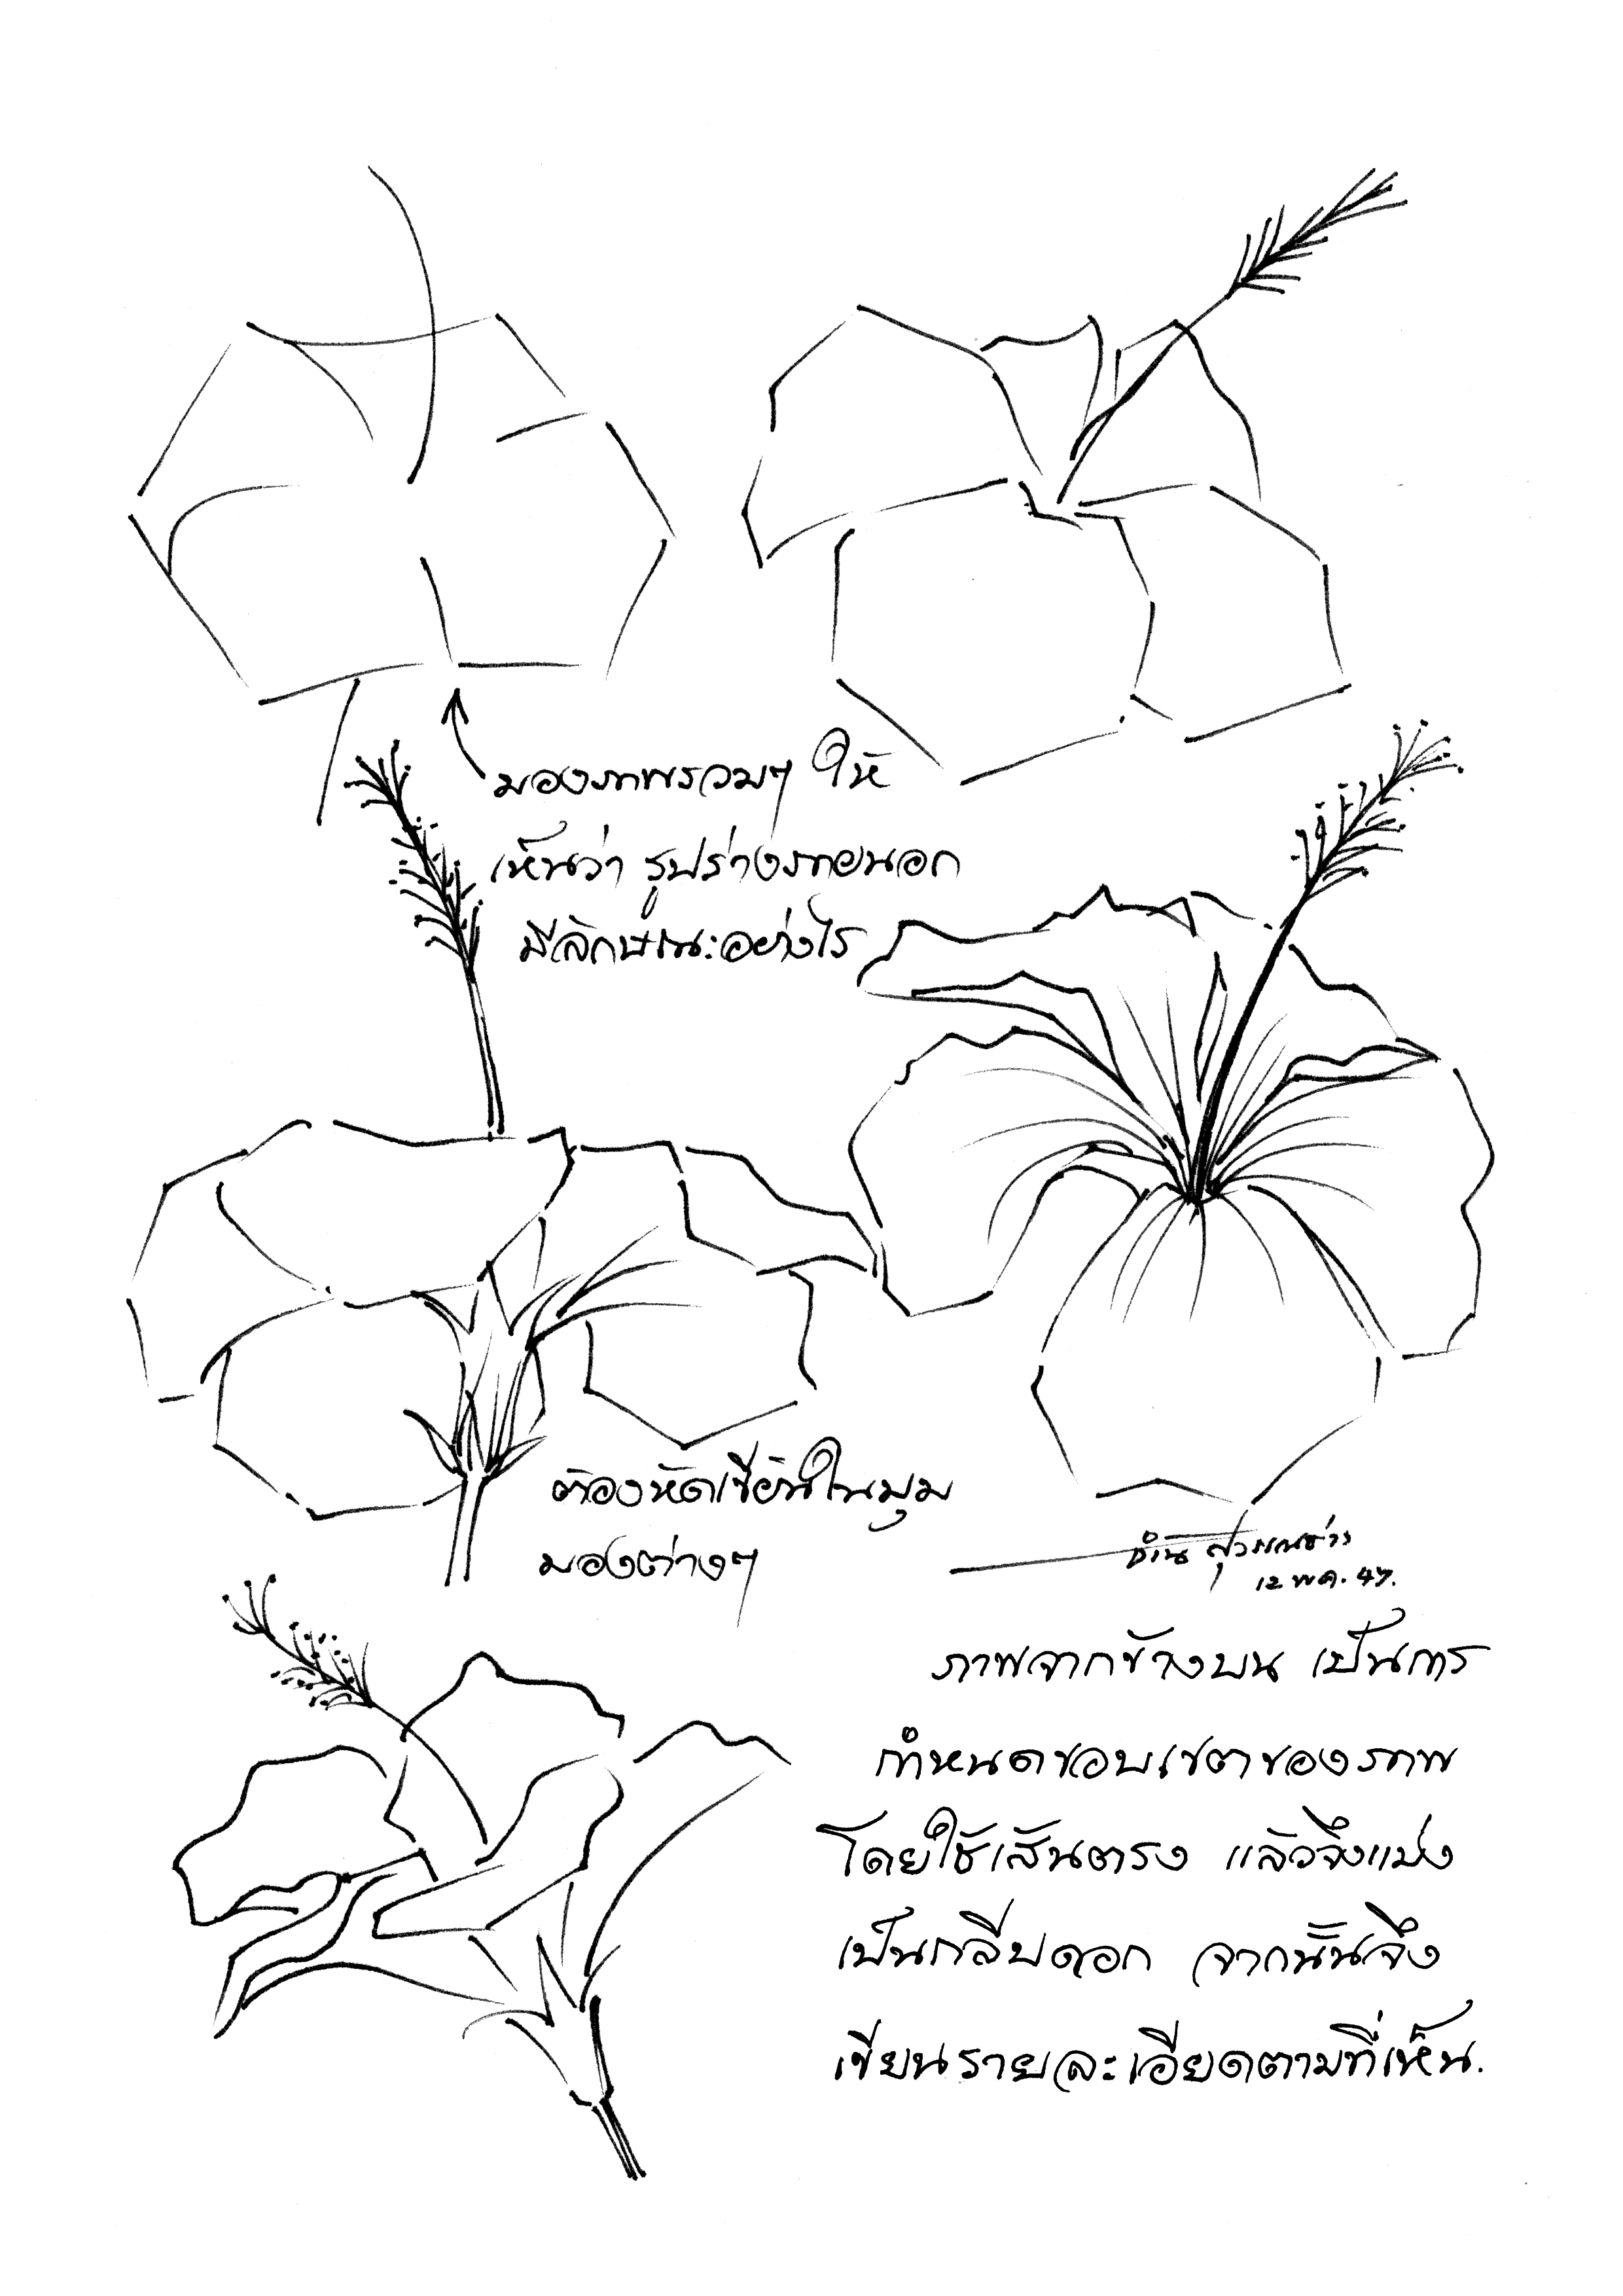 มองภาพรวมๆ ให้
เห็นว่า รูปร่างภายนอก
มีลักษณะอย่างไร
ต้องหัดเขียนในมุม
มองต่างๆ
12 พค. 47.
ภาพจากข้างบน เป็นการ
กำหนดขอบเขตของภาพ
โดยใช้เส้นตรง แล้วจึงแบ่ง
เป็นกลีบดอก จากนั้นจึง
เขียนรายละเอียดตามที่เห็น.